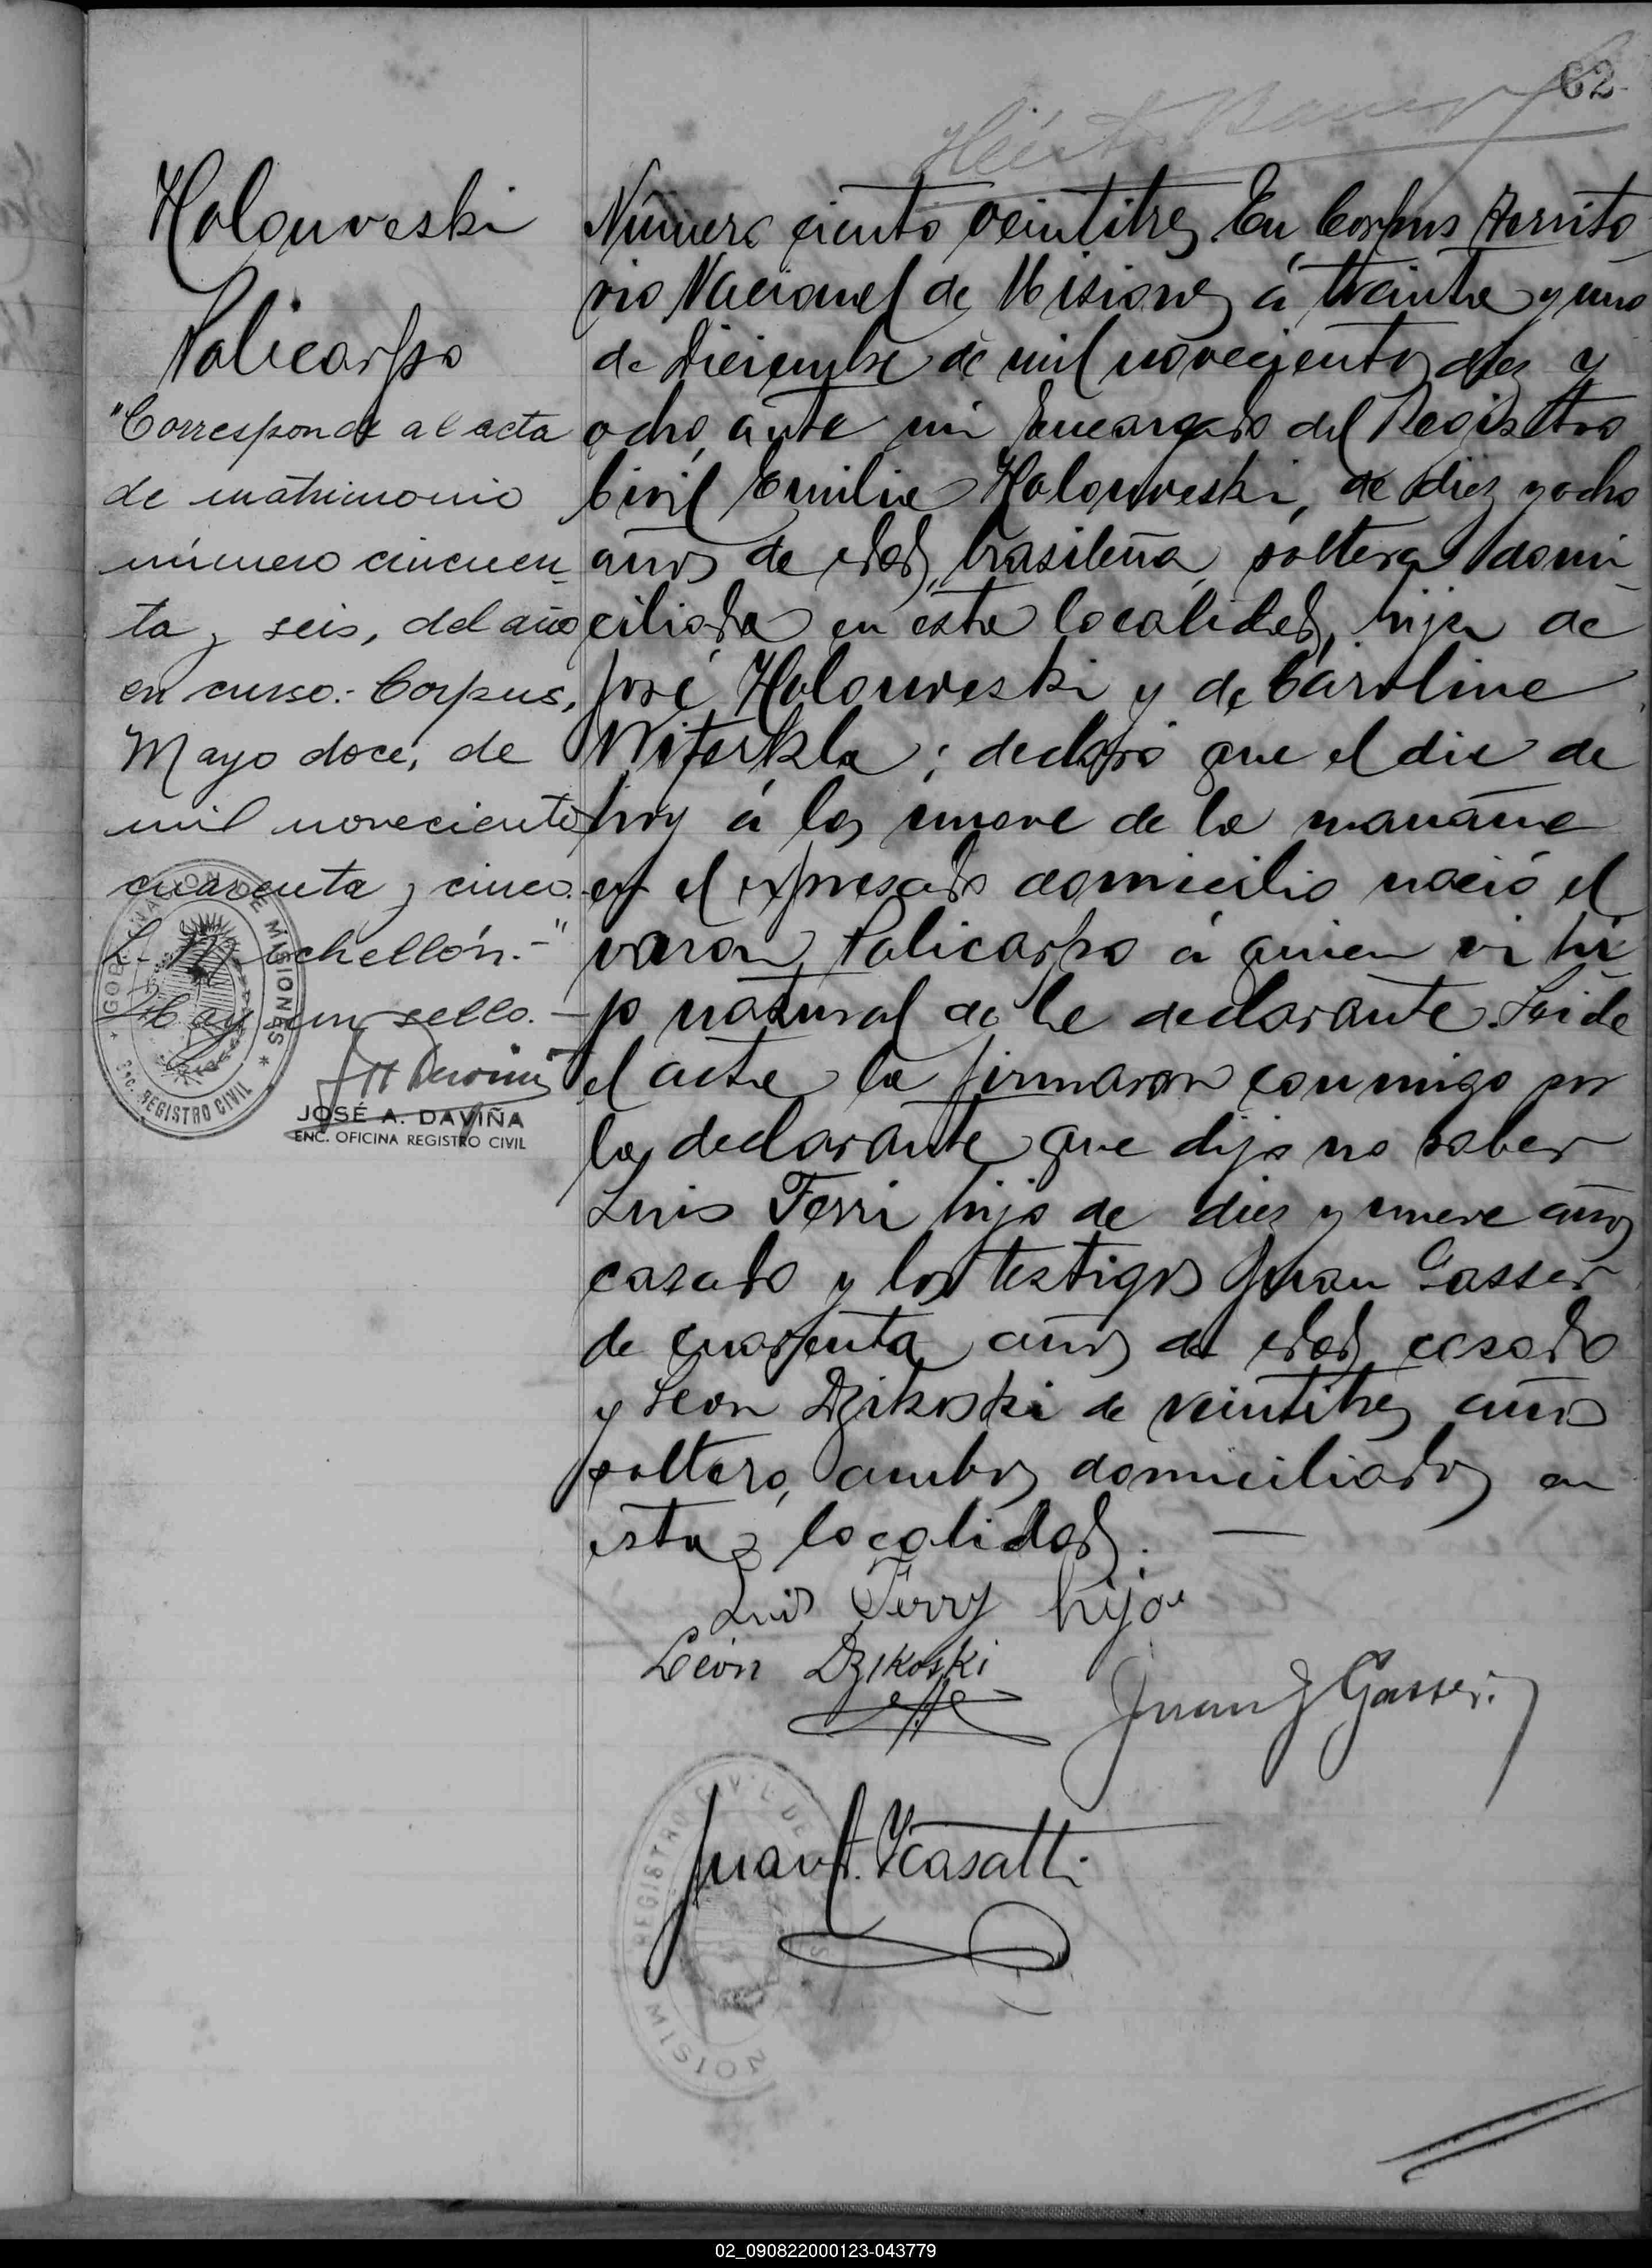 62
Holouveski
Policarpo
"Corresponde al acta
de matrimonio
número cincuen_
ta y seis, del año
en curso:- Corpus,
Mayo doce, de
mil novecientos
cuarenta y cinco.-
chellón.-"
Hay un sello.-
GOBERNACION DE MISIONES
REGISTRO CIVIL
JOSÉ A. DAVIÑA
ENC. OFICINA REGISTRO CIVIL
Número ciento veintitres. En Corpus Territo
rio Nacional de Misiones á treinta y uno
de Diciembre de mil novecientos diez y
ocho, ante mi Encargado del Registro
Civil Emilia Holouveski, de diez y ocho
años de edad, brasileña, soltera domi
ciliada en ésta localidad, hija de
José Holouveski y de Caroline
Witerkla; declaró que el dia de
hoy á las nueve de la mañana
en el expresado domicilio nació el
varon Policarpo á quien vi hi
jo natural de la declarante. Leida
el acta la firmaron conmigo por
la declarante que dijo no saber
Luis Ferri hijo de diez y nueve años
casado y los testigos Juan Gasser
de cuarenta años de edad casado
y Leon Dzikoski de veintitres años
soltero, ambos domiciliados en
esta localidad.
Luis Ferry hijo
León Dzikoski
Juan J Gasser.
REGISTRO CIVIL DE
MISIONES
Juan A. Ycasatti
02_090822000123-043779